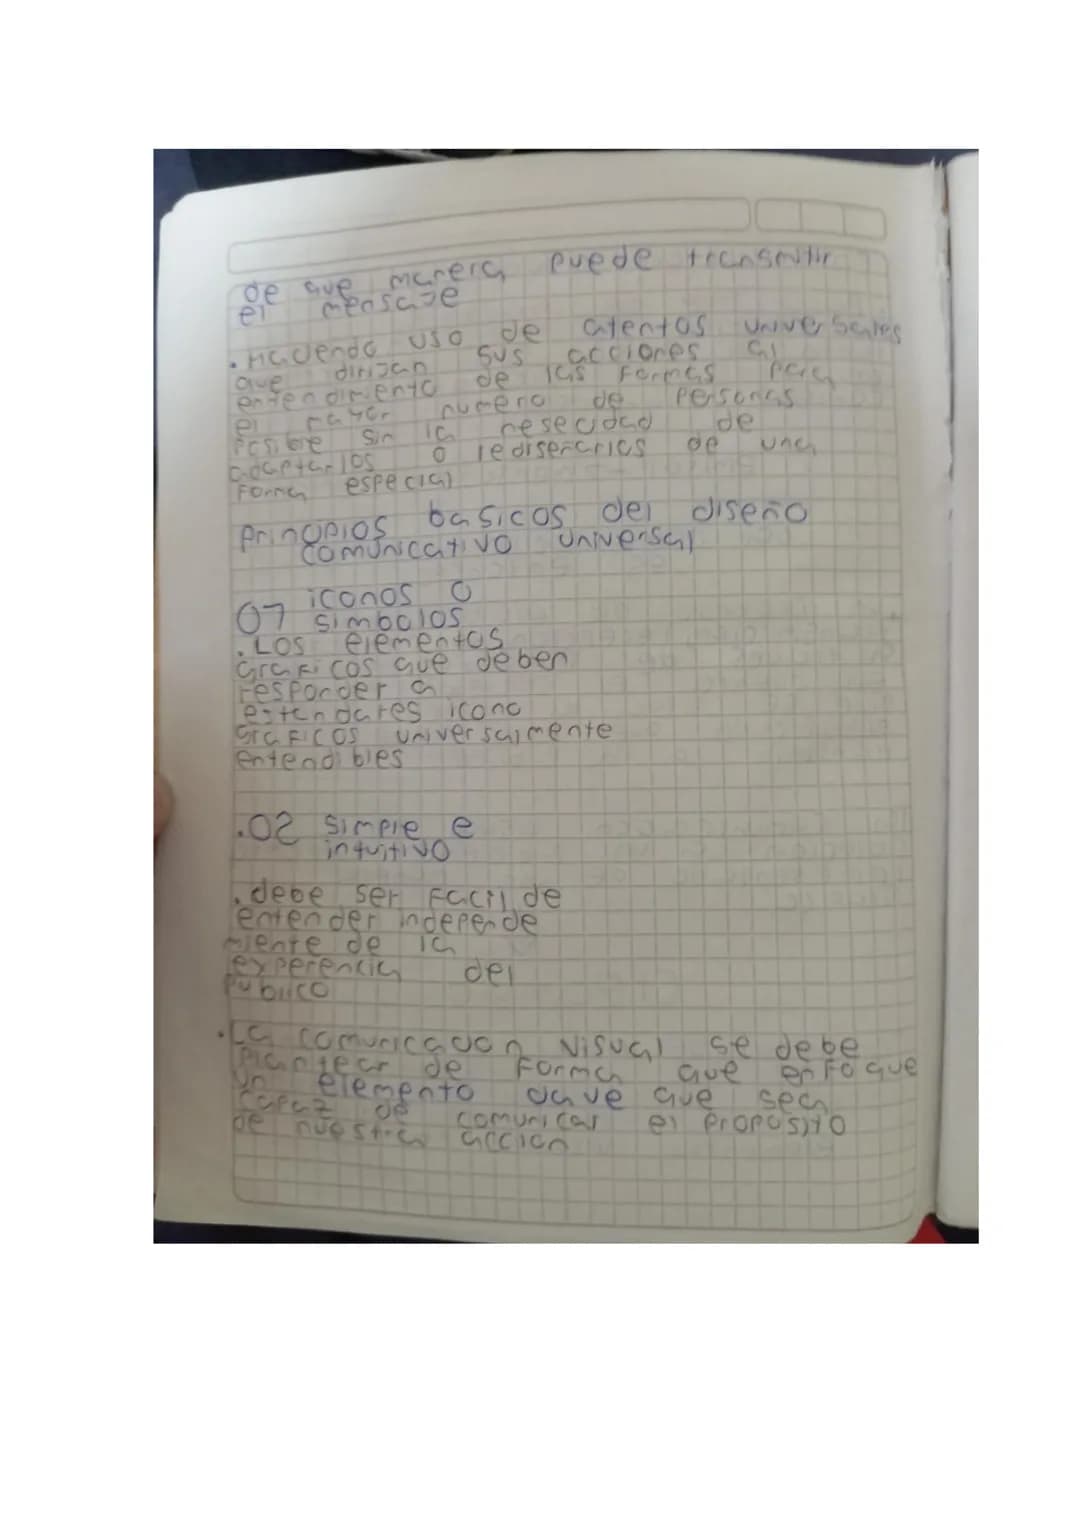 de que manera puede transmitir
el mensaje
. Haciendo uso de atentos universales
que dirijan sus acciones al
entendimiento de las formas para
el mayor numero de personas
posible sin la nesecidad de
adaptarlos o rediseñarlos de una
forma especial
principios basicos del diseño
comunicativo universal
01 iconos o
simbolos
. Los elementos
Graficos que deben
responder a
estandares icono
graficos universalmente
entendibles
.02 simple e
intuitivo
. debe ser Facil de
entender independe
miente de la
experencia del
publico
. La comunicacion visual se debe
plantear de Forma que enfoque
un elemento clave que sea
capaz de comunicar el proposito
de nuestra accion